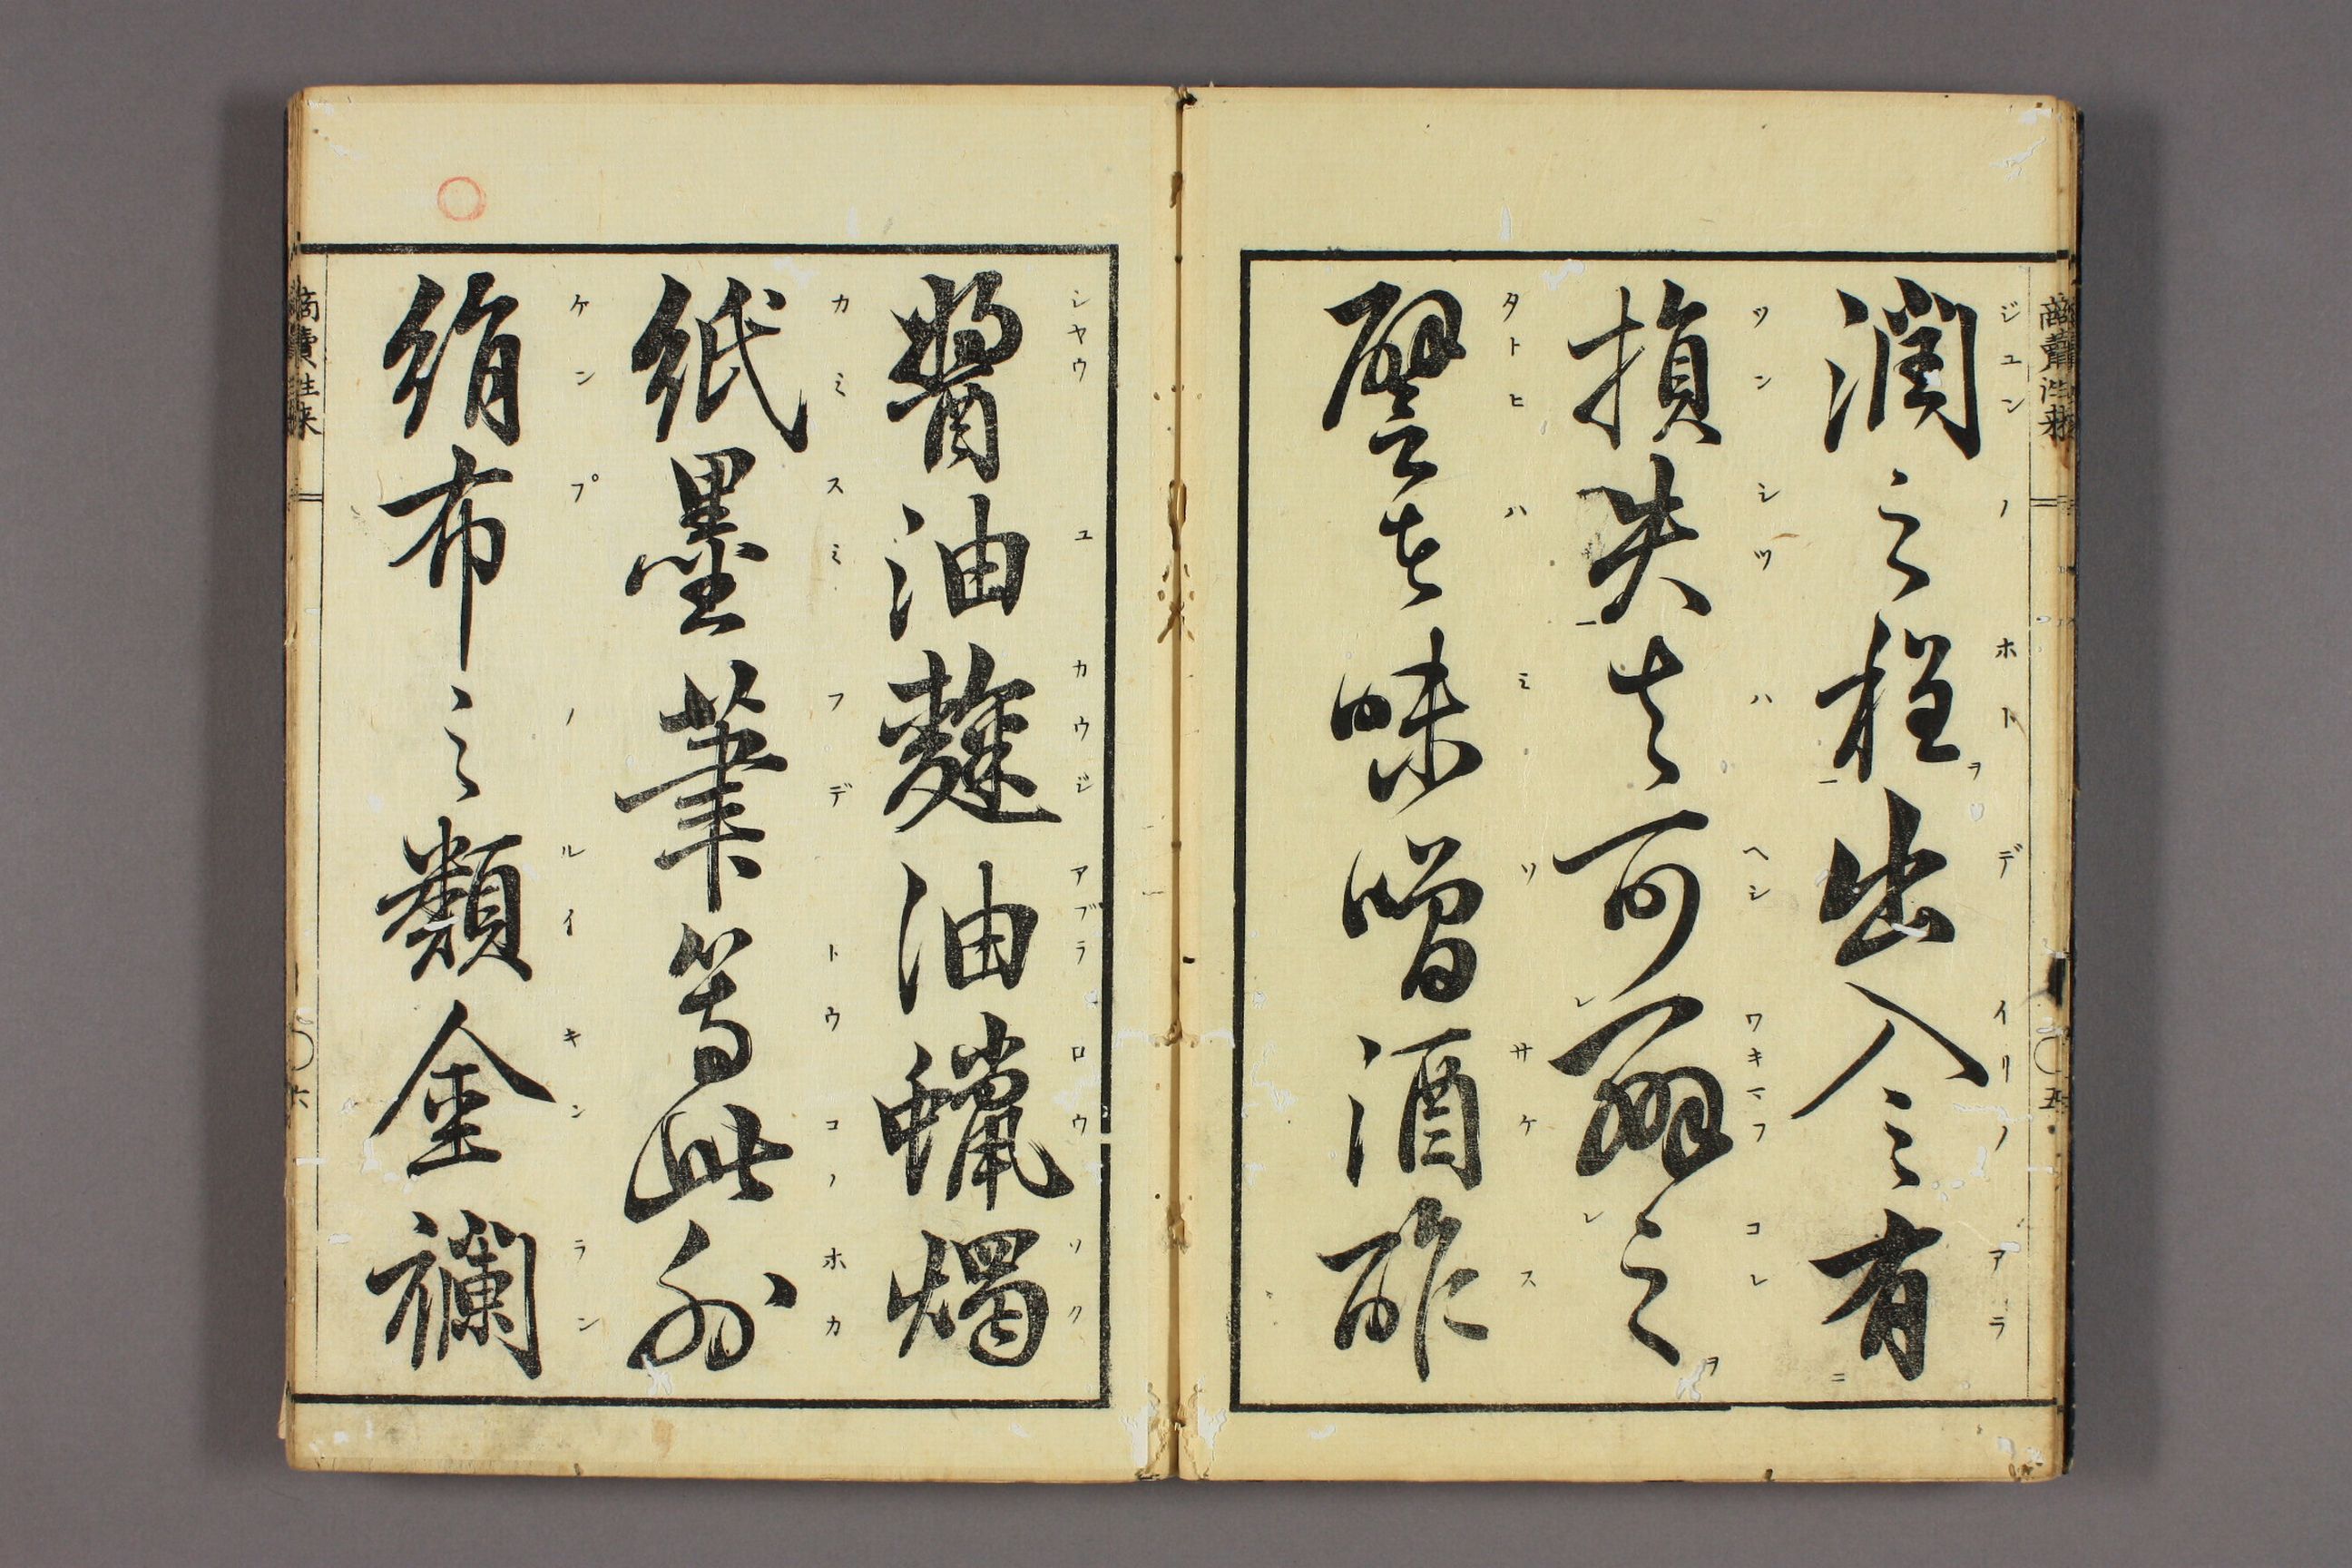 商賣往来
〇五
ジユン ノ ホトヲ デ イリ ノ アラ
潤之程出入之有
ソン シツ ハ ヘシ ワキマフ コレヲ
損失者可辨之
タトヒ ハ ミ ソ サケ ス
譬者味噌酒酢
シヤウ ユ カウジ アブラ ロウ ソク
醤油麹油蠟燭
カミ スミ フデ トウ コノ ホカ
紙墨筆等此外
ケン プ ノ ルイ キン ラン
絹布之類金襴
商賣往来
〇六